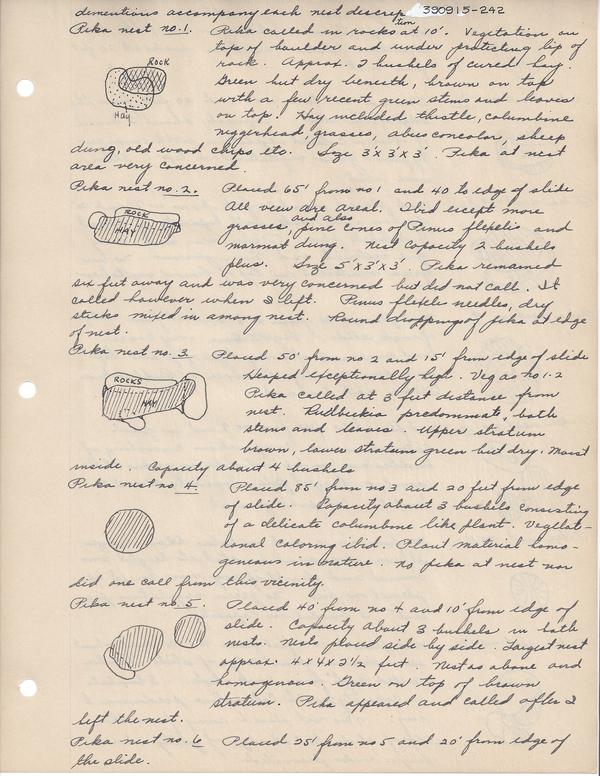 dimentions accompany each nest description 390915-242
Pika nest no. 1. Pika called in rocks at 10'. Vegetation on
top of boulder and under protecting lip of
rock. Approx. 2 bushels of cured hay.
ROCK
Hay
Green but dry beneath, brown on top
with a few recent green stems and leaves
on top. Hay included thistle, columbine
niggerhead, grasses, abies concolor, sheep
dung, old wood chips etc. Size 3'x3'x3'. Pika at nest
area very concerned.
Pika nest no. 2. Placed 65' from no 1 and 40 to edge of slide
All view are areal. Ibid except more
grasses, and also pine cones of Pinus flexilis and
ROCK
HAY
marmat dung. Nest capacity 2 bushels
plus. Size 5'x3'x3'. Pika remained
six feet away and was very concerned but did not call. It
called however when I left. Pinus flexile needles, dry
sticks mixed in among nest. Round droppings of pika at edge
of nest.
Pika nest no. 3 Placed 50' from no 2 and 15' from edge of slide
Heaped exceptionally high. Veg as no 1-2
ROCKS
HAY
Pika called at 3 feet distance from
nest. Rudbeckia predominate, both
stems and leaves. Upper stratum
brown, lower stratum green but dry. Moist
inside. Capacity about 4 bushels
Pika nest no. 4. Placed 85' from no 3 and 20 feet from edge
of slide. Capacity about 3 bushels consisting
of a delicate columbine like plant. Vegetat-
ional coloring ibid. Plant material homo-
geneous in nature. No pika at nest nor
did one call from this vicinity.
Pika nest no. 5. Placed 40' from no 4 and 10' from edge of
slide. Capacity about 3 bushels in both
nests. Nests placed side by side. Largest nest
approx. 4x4x2 1/2 feet. Nest as above and
homogenous. Green on top of brown
stratum. Pika appeared and called after I
left the nest.
Pika nest no. 6 Placed 25' from no 5 and 20' from edge of
the slide.